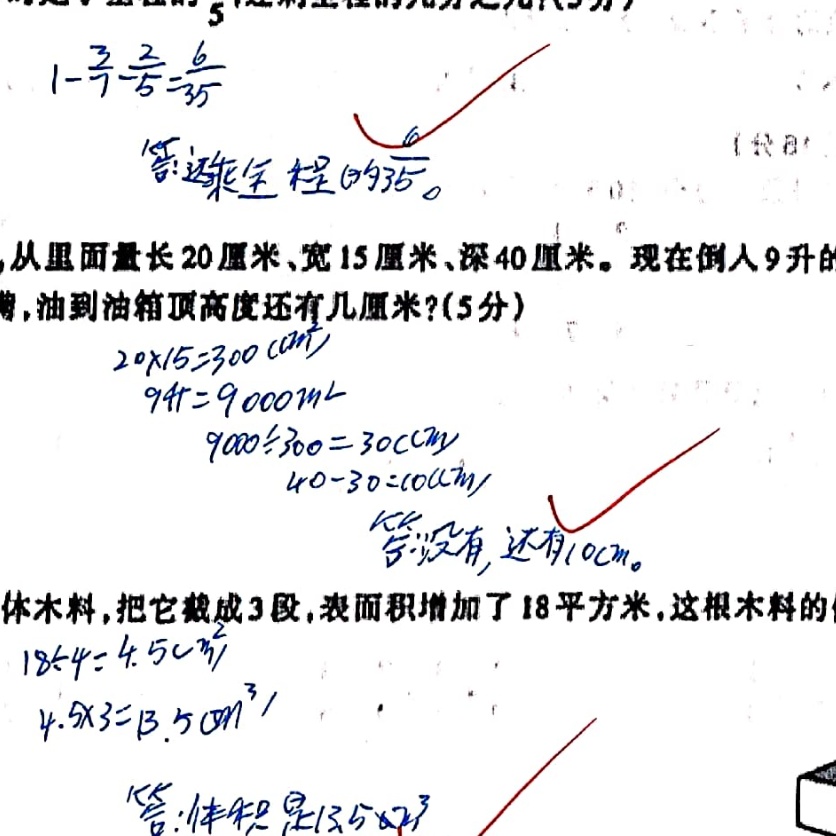 5
1-3/7-2/5=6/35
答:还剩全程的6/35。
,从里面量长20厘米、宽15厘米、深40厘米。现在倒入9升的
,油到油箱顶高度还有几厘米?(5分)
20×15=300(cm²)
9升=9000mL
9000÷300=30(cm)
40-30=10(cm)
答:没有,还有10cm。
体木料,把它截成3段,表面积增加了18平方米,这根木料的
18÷4=4.5(m²)
4.5×3=13.5(m³)
答:体积是13.5m³